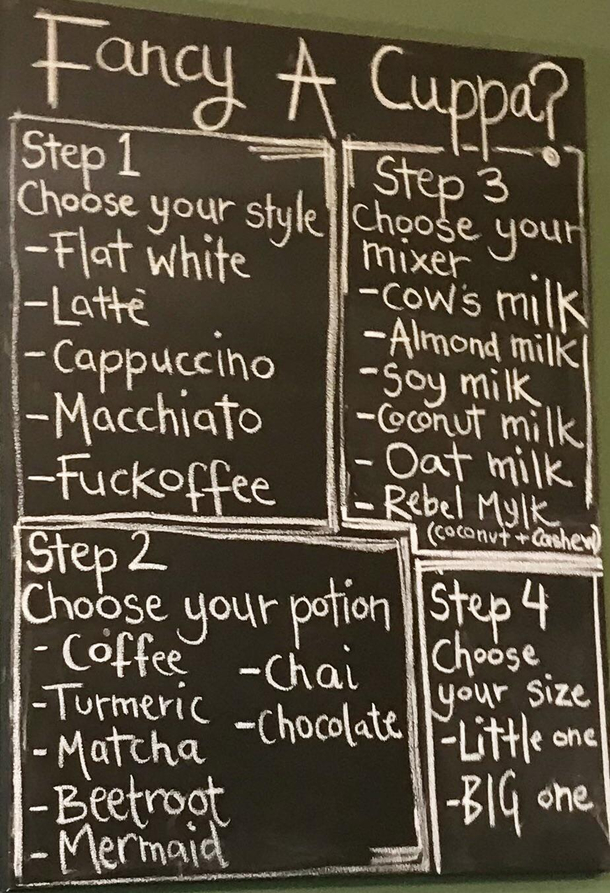 Fancy A Cuppa?
Step 1
Choose your style
-Flat white
-Latte
-Cappuccino
-Macchiato
-Fuckoffee
Step 2
Choose your potion
-Coffee
-Turmeric
-Matcha
-Beetroot
-Mermaid
-Chai
-Chocolate
Step 3
Choose your
mixer
-Cow's milk
-Almond milk
-Soy milk
-Coconut milk
- Oat milk
- Rebel Mylk
(coconut + Cashew)
Step 4
Choose
your size
-Little one
-BIG one